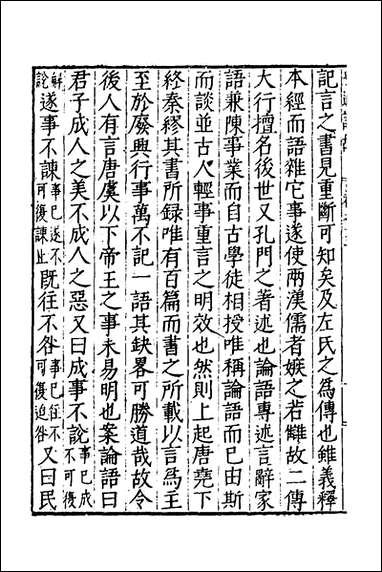 記言之書見重斷可知矣及左氏之為傳也雖義釋
本經而語雜它事遂使兩漢儒者嫉之若讎故二傳
大行擅名後世又孔門之著述也論語專述言辭家
語兼陳事業而自古學徒相授唯稱論語而已由斯
而談並古人輕事重言之明效也然則上起唐堯下
終秦繆其書所録唯有百篇而書之所載以言為主
至於廢興行事萬不記一語其缺畧可勝道哉故令
後人有言唐虞以下帝王之事未易明也案論語曰
君子成人之美不成人之惡又曰成事不說事已成不可復
解說遂事不諫事已遂不可復諫止既往不咎事已往不可復追咎又曰民